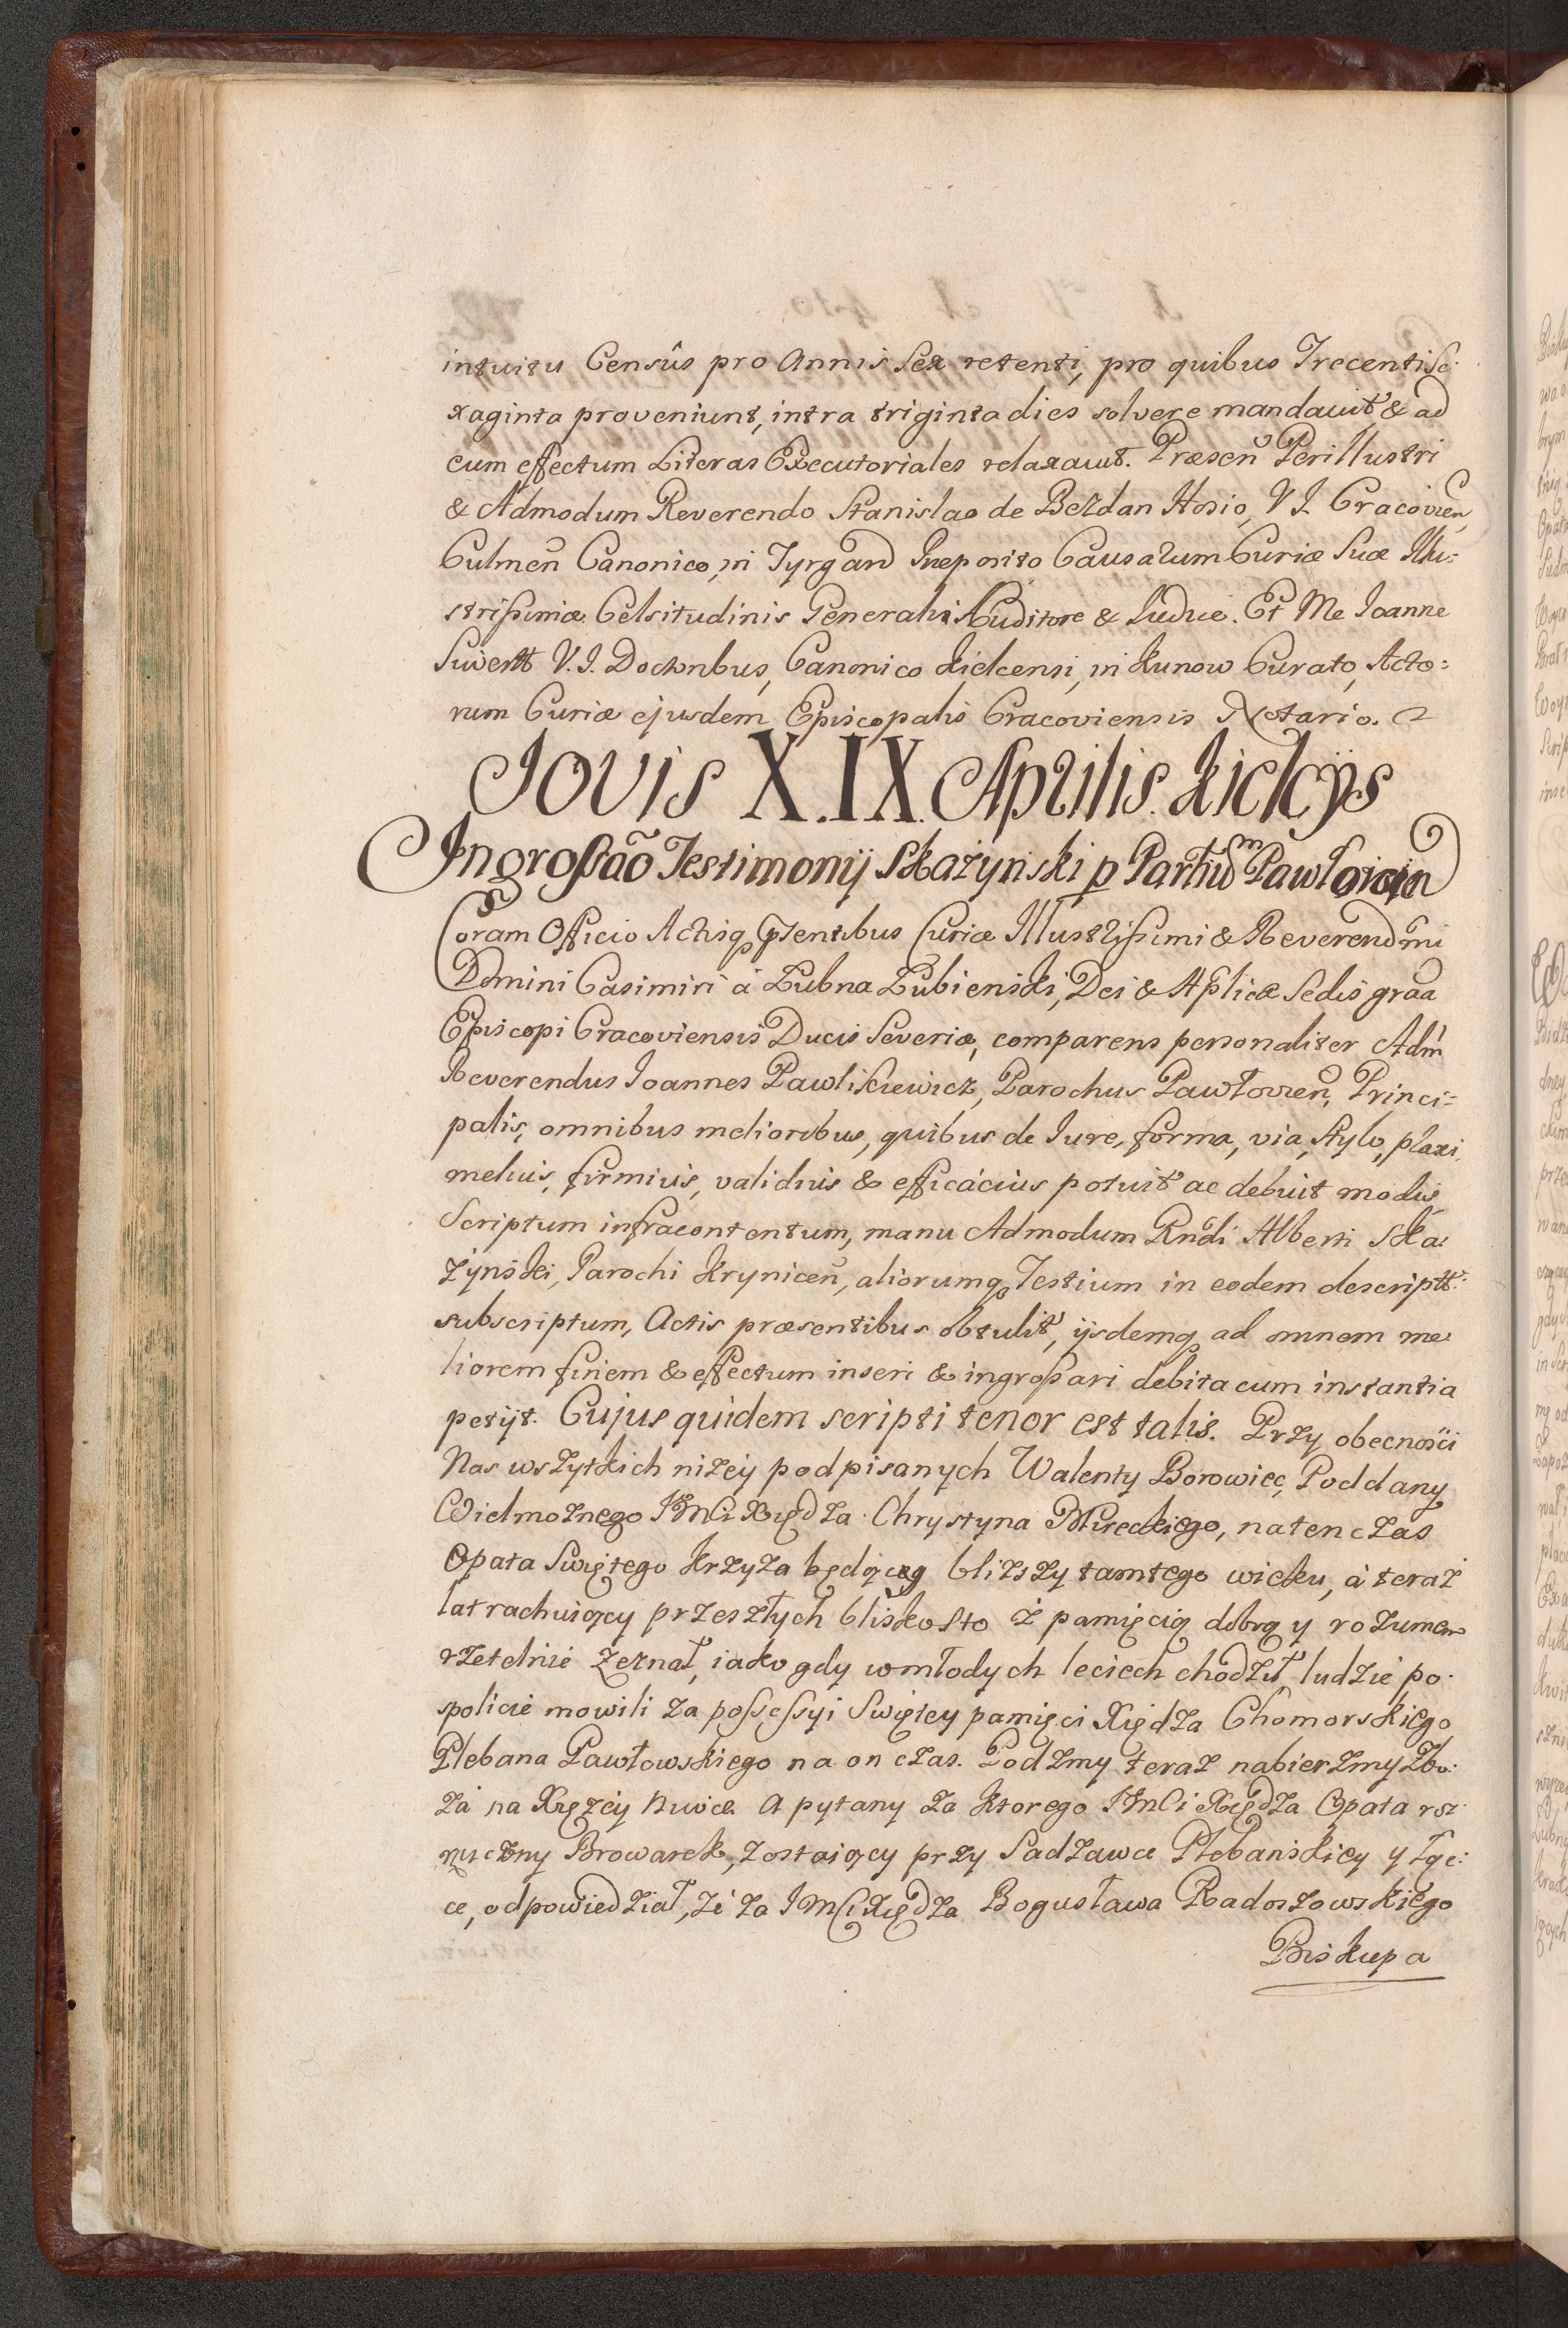 intuitu Censûs pro Annis Sex retenti, pro quibus Trecenti Se:
xaginta proveniunt, intra triginta dies solvere mandavit & ad
eum effectum Literas Executoriales relaxavit. Præsen Perillustri
& Admodum Reverendo Stanislao de Bezdan Hosio, V. I. Cracovien,
Culmen Canonico, in Tyrgard Præposito Causarum Curiæ Suæ Illu:
strissimæ Celsitudinis Generali Auditore & Iudice. Et Me Ioanne
Suwertt V. I. Doctoribus, Canonico Kielcensi, in Kunow Curato, Acto:
rum Curiæ ejusdem Episcopalis Cracoviensis Notario.
Jovis X.IX. Aprilis. Kielcijs
Ingrossaõ Testimonij Skażyński p Parthũ Pawłovien
Coram Officio Actisq pñsentibus Curiæ Illustrissimi & Reverendmi
Dómini Casimiri à Łubna Łubienski, Dei & Aplicæ Sedis graã
Episcopi Cracoviensis Ducis Severiæ, comparens personaliter Adm
Reverendus Ioannes Pawlikiewicz, Parochus Pawłovien, Princi:
palis, omnibus melioribus, quibus de Iure, forma, via, stylo, plaxi,
meliùs, firmiùs, validiùs & efficáciùs potuit ac debuit modis,
Scriptum infracontentum, manu Admodum Rndi Alberti Ska:
żyński, Parochi Krynicen, aliorumq Testium in eodem descriptt:
subscriptum, Actis præsentibus obtulit, ijsdemq ad omnem me:
liorem finem & effectum inseri & ingrossari debita cum instantia
petijt. Cujus quidem scripti tenor est talis. Przy obecności
Nas wszytkich niżey podpisanych Walenty Borowiec, Poddany
Wielmożnego JMCi Xiędza Chrystyna Mireckiego, natenczas
Opata Swiętego Krzyża będąceg bliższy tamtego wieku, à teraz
lat rachuiący przeszłych blisko sto z pamięcią dobrą y rozumem
rzetelnie zeznał, iako gdy w młodych leciech chodził, ludzie po:
spolicie mowili za possessyi Swiętey pamięci Xiędza Chomorskiego
Plebana Pawłowskiego na on czas. Podzmy teraz nabierzmy zbo:
ża na Xiężey Niwie. A pytany za ktorego JMCi Xiędza Opata roz:
Browarek, zostaiący przy Sadzawce Plebanskiey y Łąc:
ce, odpowiedział, że za JMCi Xiędza Bogusława Radoszowskiego
Biskupa